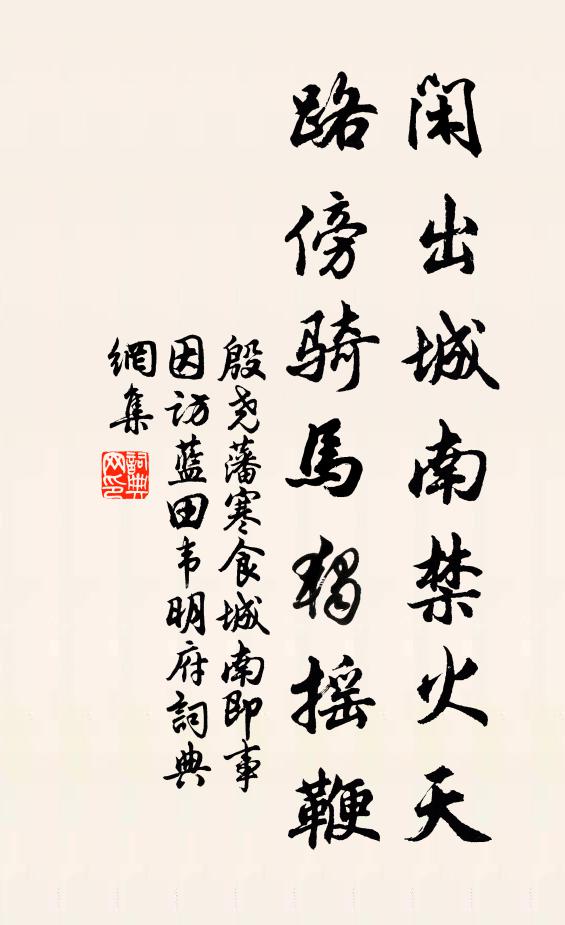 闲出城南禁火天
路傍骑马独摇鞭
殷尧藩寒食城南即事
因访蓝田韦明府詞典
網集
詞典
网印